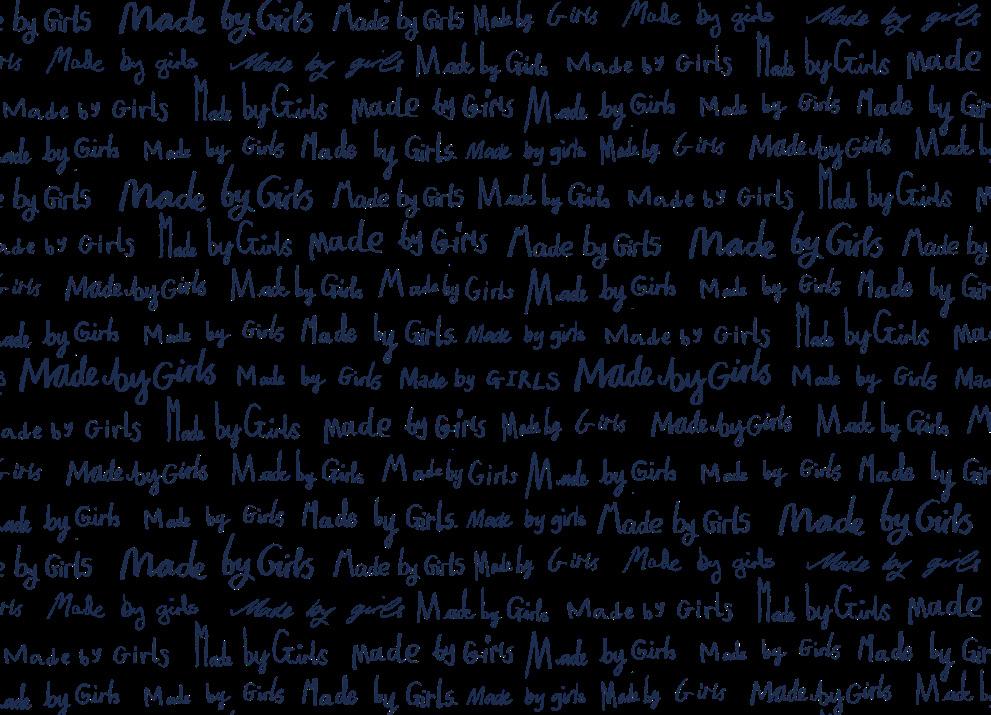 by Girls Made by Girls Made by Girls Made by Girls Made by girls Made by girls
Made by girls Made by girls Made by Girls Made by Girls Made by Girls made
Made by Girls Made by Girls made by Girls Made by Girls Made by Girls Made by
by Girls Made by Girls Made by Girls. Made by girls Made by Girls Made by Girls Made
by Girls Made by Girls Made by Girls Made by Girls Made by Girls Made by Girls
by Girls Made by Girls made by Girls Made by Girls Made by Girls Made by
Girls Made by Girls Made by Girls Made by Girls Made by Girls Made by Girls Made by
by Girls Made by Girls Made by Girls. Made by girls Made by Girls Made by Girls
Made by Girls Made by Girls Made by GIRLS Made by Girls Made by Girls
by Girls Made by Girls made by Girls Made by Girls Made by Girls Made by Girls
Girls Made by Girls Made by Girls Made by Girls Made by Girls Made by Girls Made by
by Girls Made by Girls Made by Girls. Made by girls Made by Girls Made by Girls
by Girls Made by Girls Made by Girls Made by Girls Made by girls Made by girls
Made by girls Made by girls Made by Girls Made by Girls Made by Girls made
Made by Girls Made by Girls made by Girls Made by Girls Made by Girls Made by
by Girls Made by Girls Made by Girls. Made by girls Made by Girls Made by Girls Made